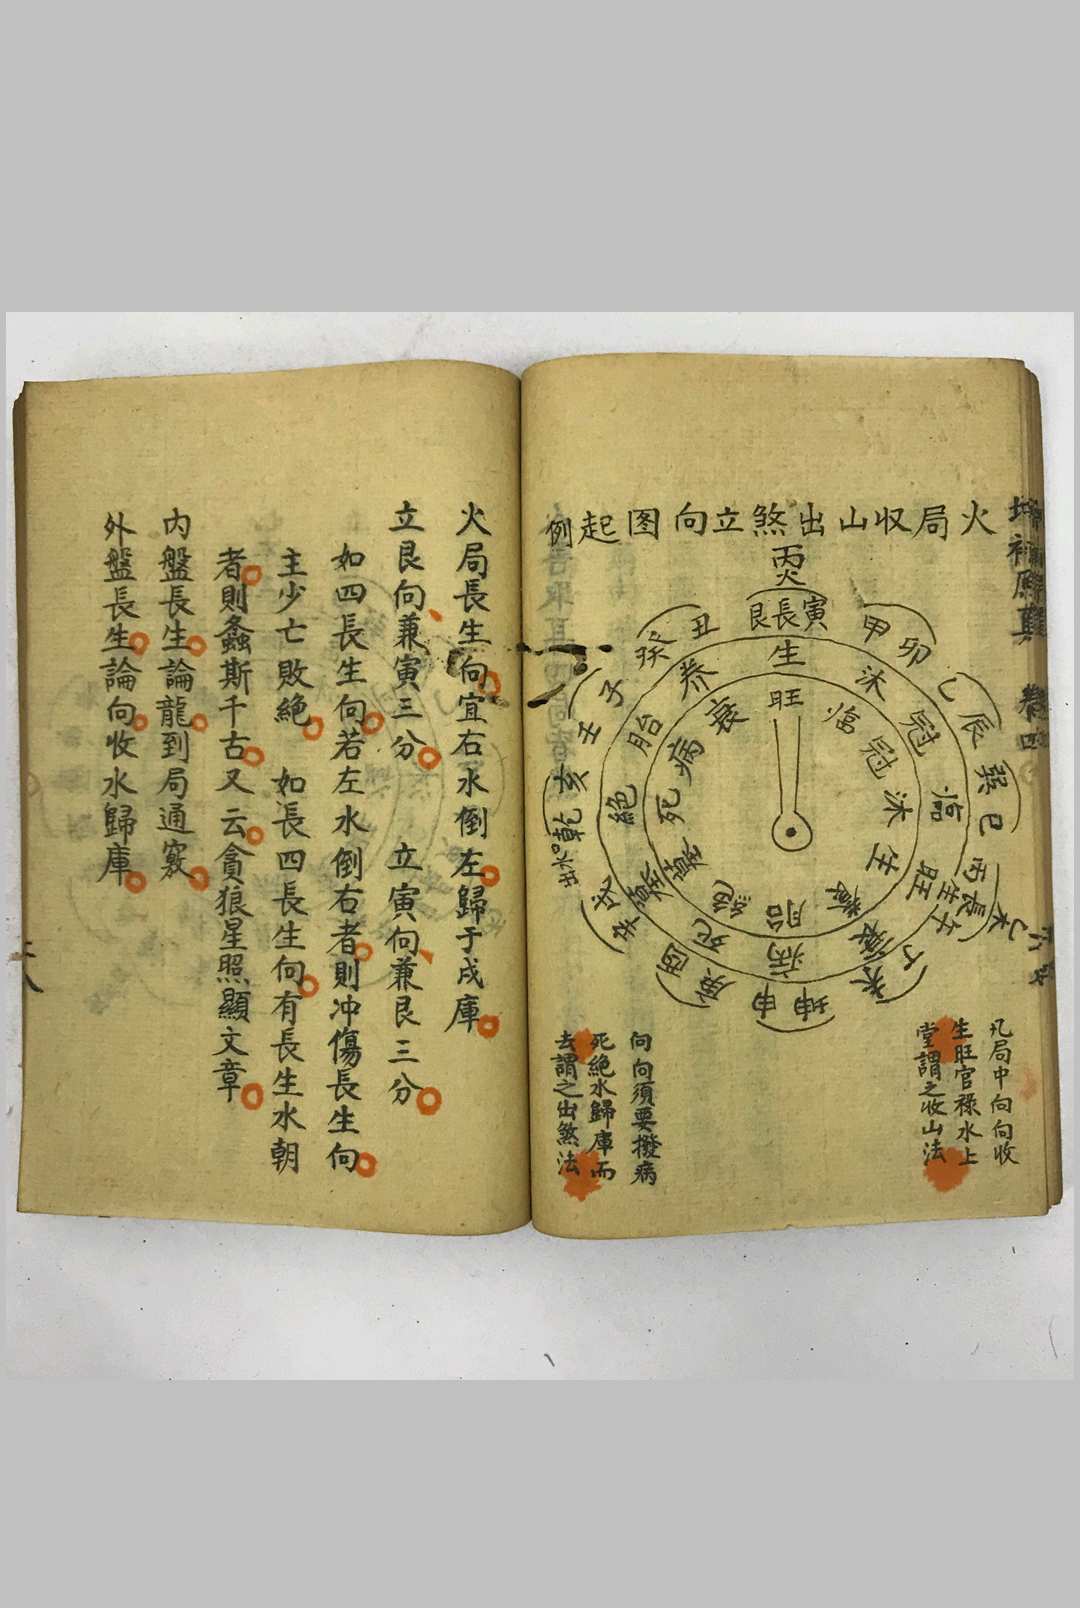 火局収山出煞立向图起例
丙火
艮長寅
甲卯
乙辰
巽巳
丙長生午
丁未
坤申
庚酉
辛戌
乾亥
出水口
壬子
癸丑
生
沐
冠
臨
旺
衰
病
死
墓
絕
胎
养
旺
臨
冠
沐
生
養
胎
絕
墓
死
病
衰
凡局中向向收
生旺官祿水上
堂謂之收山法
向向須要撥病
死絕水歸庫而
去謂之出煞法
卷四
火局長生向宜右水倒左歸于戌庫
立艮向兼寅三分 立寅向兼艮三分
如四長生向若左水倒右者則冲傷長生向
主少亡敗絕 如長四長生向有長生水朝
者則螽斯千古又云貪狼星照顯文章
内盤長生論龍到局通竅
外盤長生論向收水歸庫